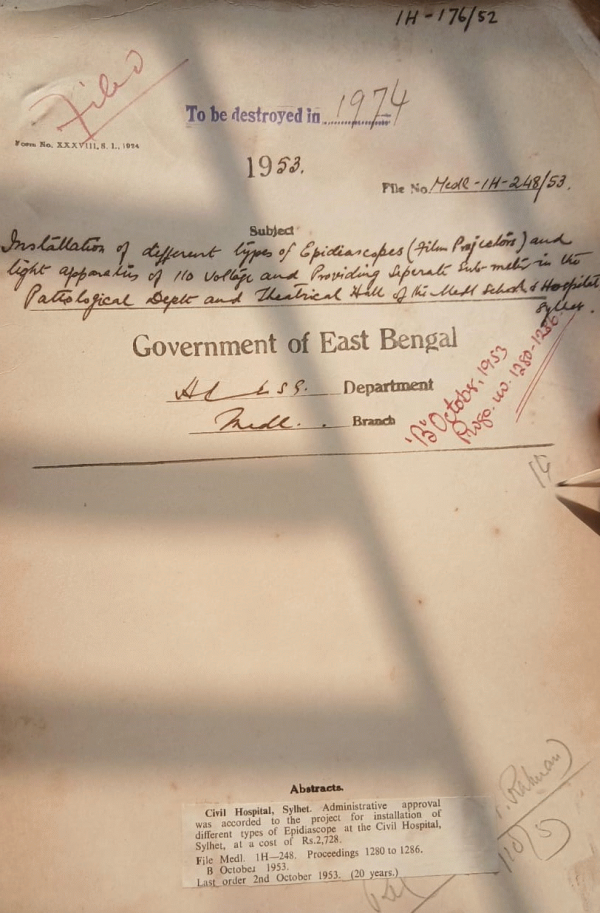 1H-176/52
Filed
To be destroyed in 1974
Form No. XXXVIII, S. I., 1924
1953.
File No. Medl-1H-248/53.
Subject
Installation of different types of Epidiascopes (Film Projectors) and
light apparatus of 110 voltage and Providing Seperate Sub-meter in the
Pathological Deptt and Theatrical Hall of the Medl School & Hospital
Sylhet.
Government of East Bengal
Department
Medl. Branch
'B' October, 1953
Progs. no. 1280-1286
Abstracts.
Civil Hospital, Sylhet. Administrative approval
was accorded to the project for installation of
different types of Epidiascope at the Civil Hospital,
Sylhet, at a cost of Rs.2,728.
File Medl. 1H—248. Proceedings 1280 to 1286.
B October 1953.
Last order 2nd October 1953. (20 years.)